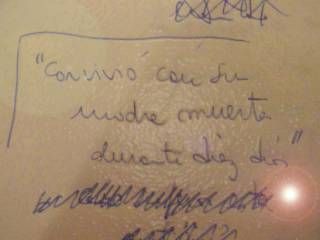 "Convivió con su
madre muerta
durante diez días"